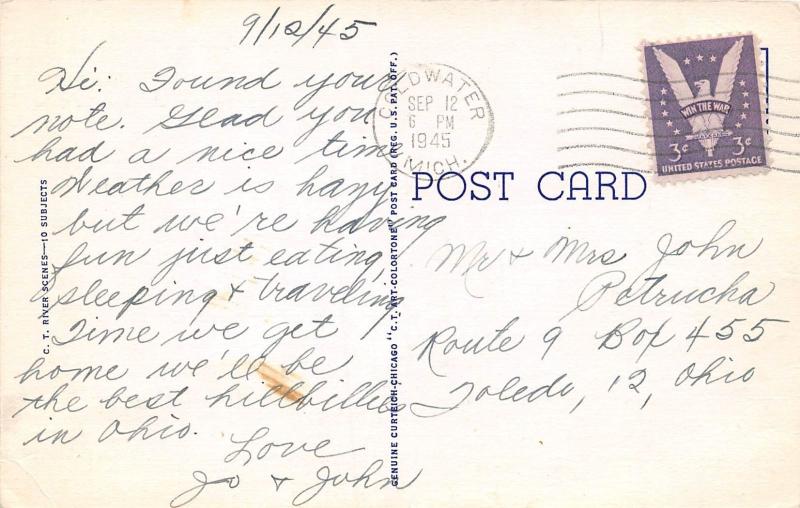 9/12/45
Hi: Found your
note. Glad you
had a nice time
Weather is hazy
but we're having
fun just eating,
sleeping & traveling
Time we get
home we'll be
the best hillbillies
in Ohio.
Love
Jo & John
C. T. RIVER SCENES—10 SUBJECTS
GENUINE CURTEICH-CHICAGO "C. T. ART-COLORTONE" POST CARD (REG. U. S. PAT. OFF.)
COLDWATER
SEP 12
6 PM
1945
MICH.
WIN THE WAR
3¢ 3¢
UNITED STATES POSTAGE
POST CARD
Mr & Mrs John
Petrucha
Route 9 Box 455
Toledo, 12, Ohio